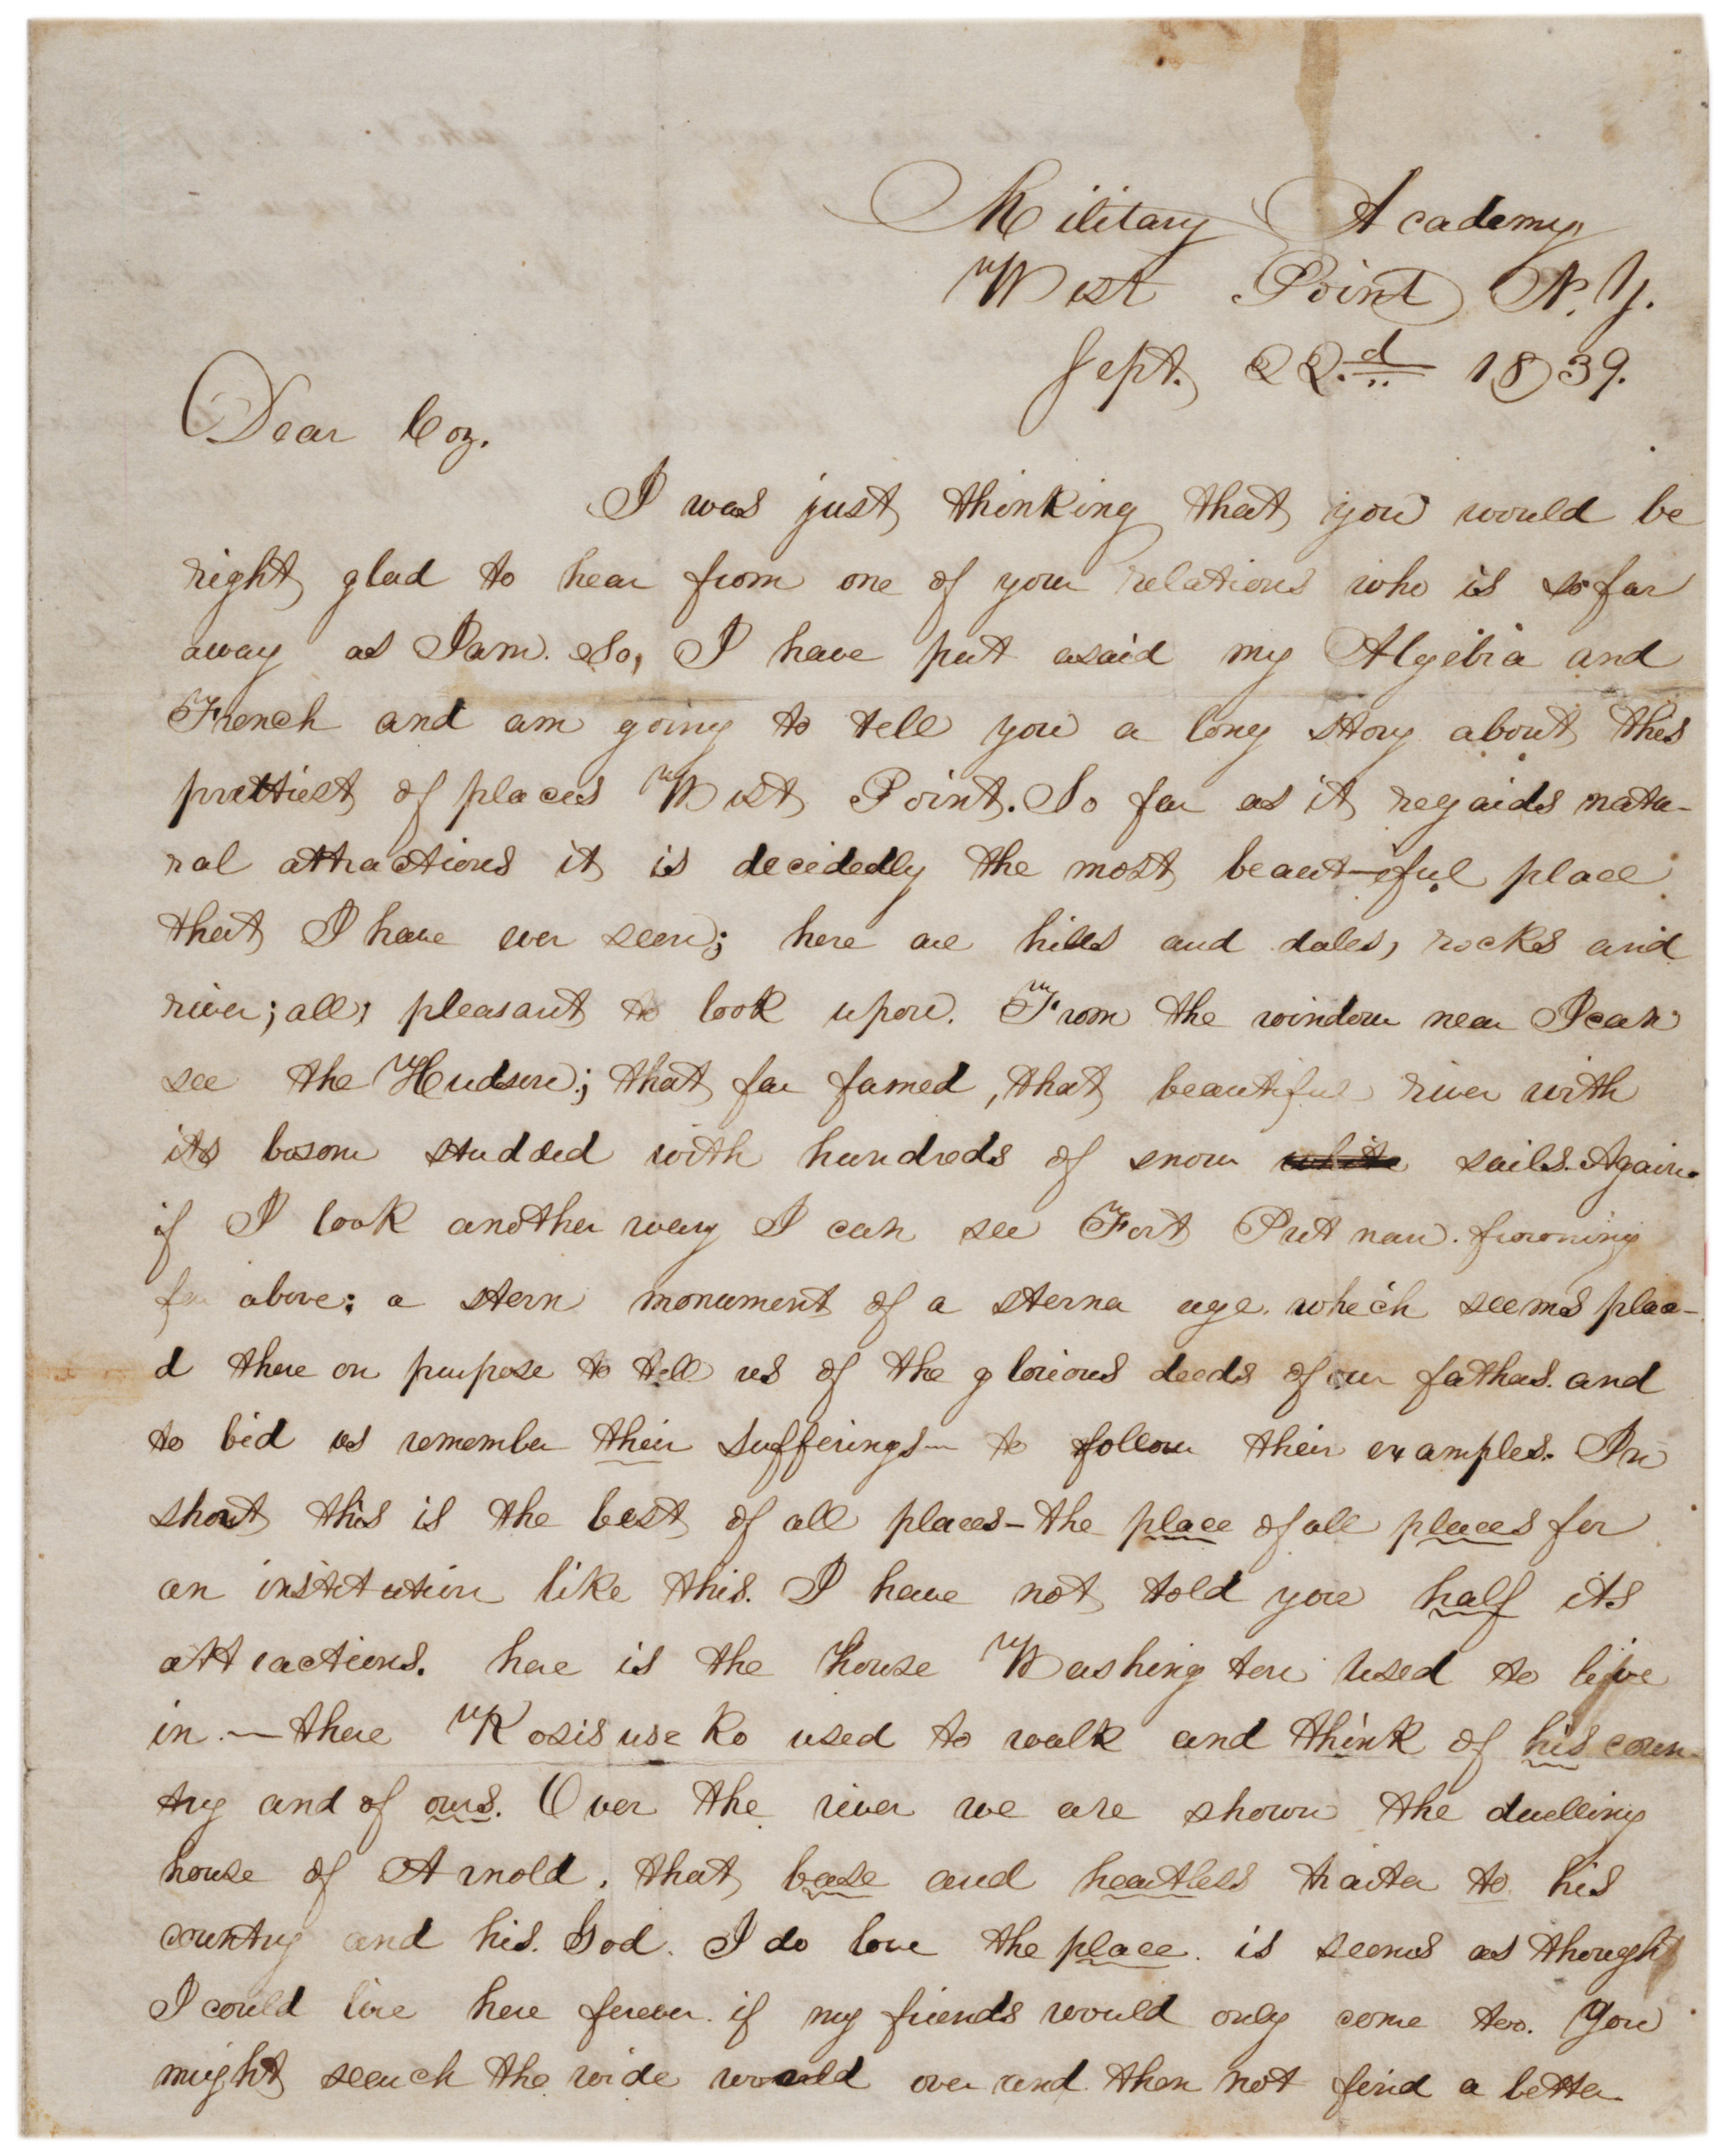 Military Academy
West Point N.Y.
Sept. 22.d 1839.
Dear Coz.
I was just thinking that you would be
right glad to hear from one of your relations who is so far
away as I am. So, I have put asaid my Algebra and
French and am going to tell you a long story about this
prettiest of places West Point. So far as it regards natu-
ral attractions it is decidedly the most beaut-iful place
that I have ever seen; here are hills and dales, rocks and
river; all; pleasant to look upon. From the window near I can
see the Hudson; that far famed, that beautiful river with
its bosom studded with hundreds of snow white sails. Again.
if I look another way I can see Fort Putnam. frowning
far above; a stern monument of a sterna age. which seems plac-
d there on purpose to tell us of the glorious deeds of our fathers. and
to bid us remember their sufferings— to follow their examples. In
short this is the best of all places—the place of all places for
an institution like this. I have not told you half its
attractions. here is the house Washington used to live
in.— there Kosisuseko used to walk and think of his coun-
try and of ours. Over the river we are shown the duelling
house of Arnold, that base and heartless traitor to his
country and his God. I do love the place. is seems as though
I could live here forever. if my friends would only come too. You
might search the wide world over and then not find a better